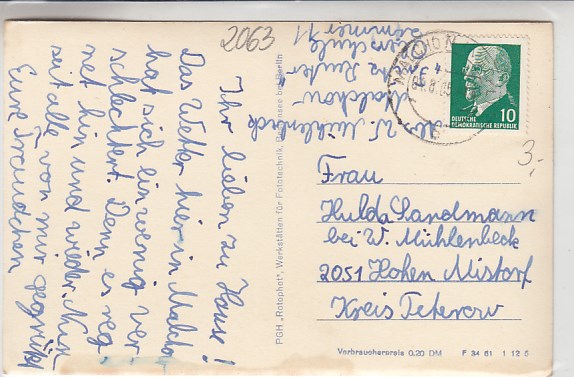 2063
Ihr lieben zu Hause!
Das Wetter hier in Malcho
hat sich ein wenig ver-
schlechtert. Denn es reg-
net hin und wieder. Nun
seit alle von mir gegrüßt
Eure Traudchen
W. Mühlenbeck
Malchow
Fritz Reuter
Sommer 71
PGH „Rotophot“, Werkstätten für Fototechnik, Bestensee bei Berlin
MALCHOW
DEUTSCHE
DEMOKRATISCHE REPUBLIK
10
3,-
Frau
Hulda Landmann
bei W. Mühlenbeck
2051 Hohen Mistorf
Kreis Teterow
Verbraucherpreis 0.20 DM F 34 61 1 12 6